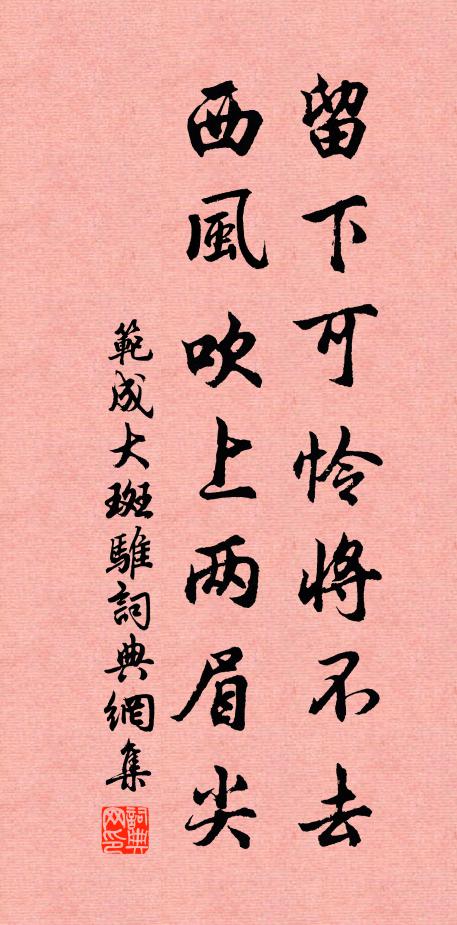 留下可怜將不去
西風吹上两眉尖
範成大斑騅詞典網集
詞典网印